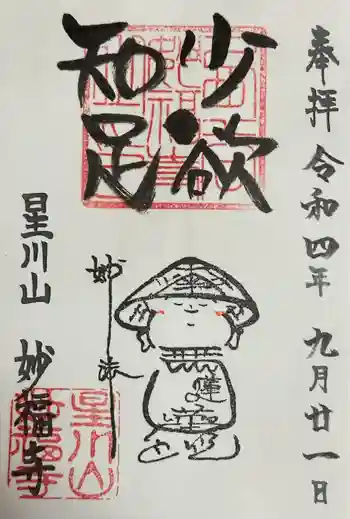 奉拝 令和四年 九月廿一日
少欲
知足
妙法
蓮華
星川山 妙福寺
星川山
妙福寺